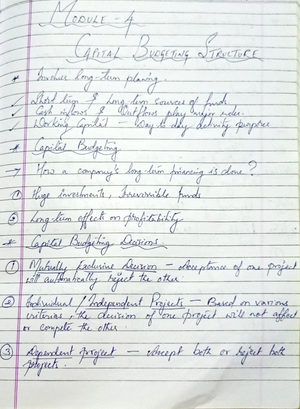 MODULE - 4
CAPITAL BUDGETING STRUCTURE
* Involves long-term planing.
✓ Short term & Long term sources of funds
✓ Cash inflows & Outflows play major roles.
✓ Working Capital - Day to day activity purpose
* Capital Budgeting
→ How a company's long-term financing is done?
① Huge investments, Irreversible funds
② Long-term effects on profitability
* Capital Budgeting Decisions
① Mutually Exclusive Decision - Acceptance of one project
will automatically reject the other.
② Individual / Independent Projects - Based on various
criterias, the decision of one project will not affect
or compete the other.
③ Dependent project - Accept both or reject both
projects.